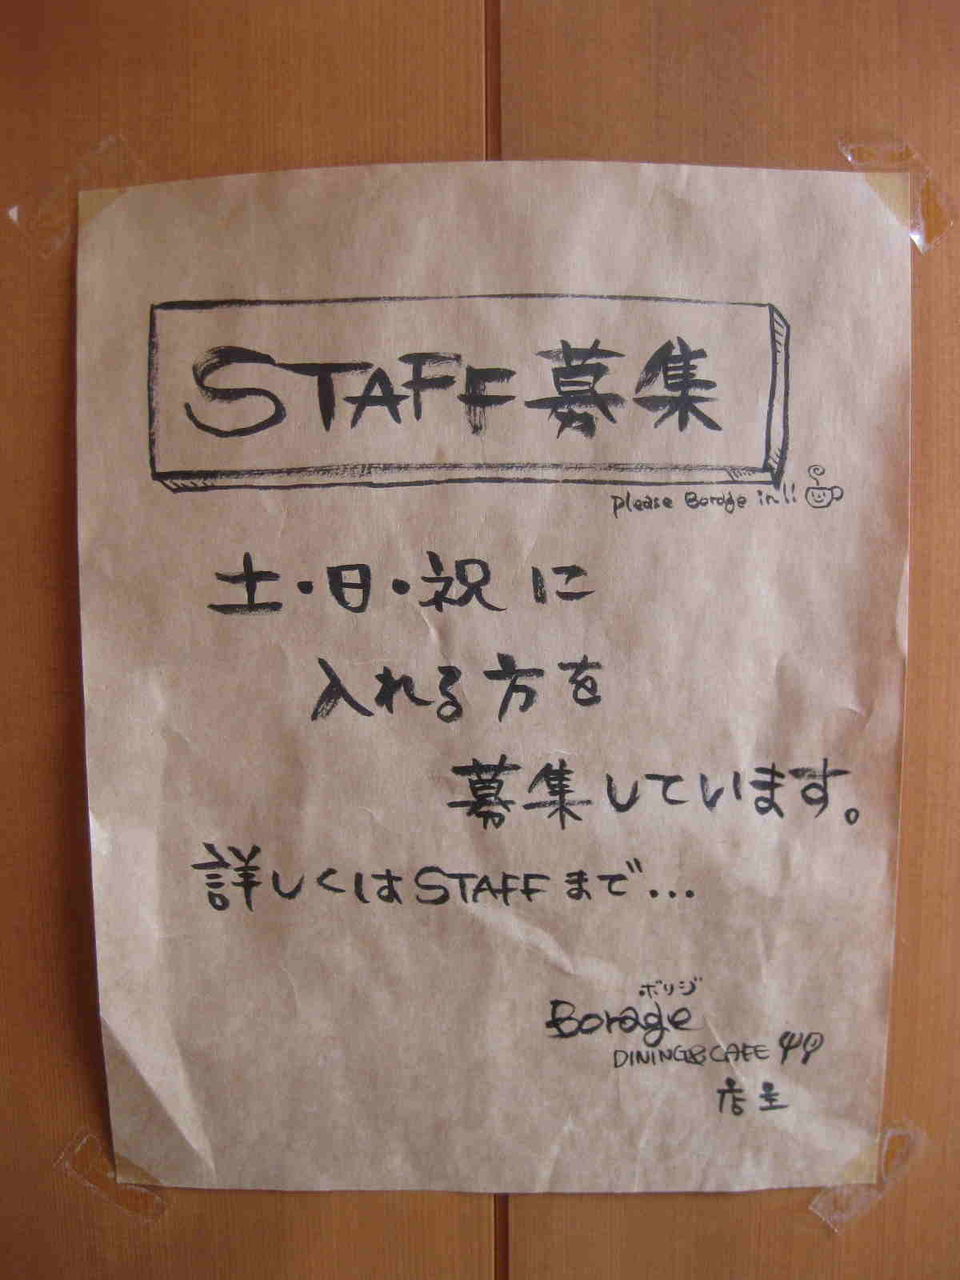 STAFF募集
please Borage in!!
土・日・祝に
入れる方を
募集しています。
詳しくはSTAFFまで...
ボリジ
Borage
DINING&CAFE
店主